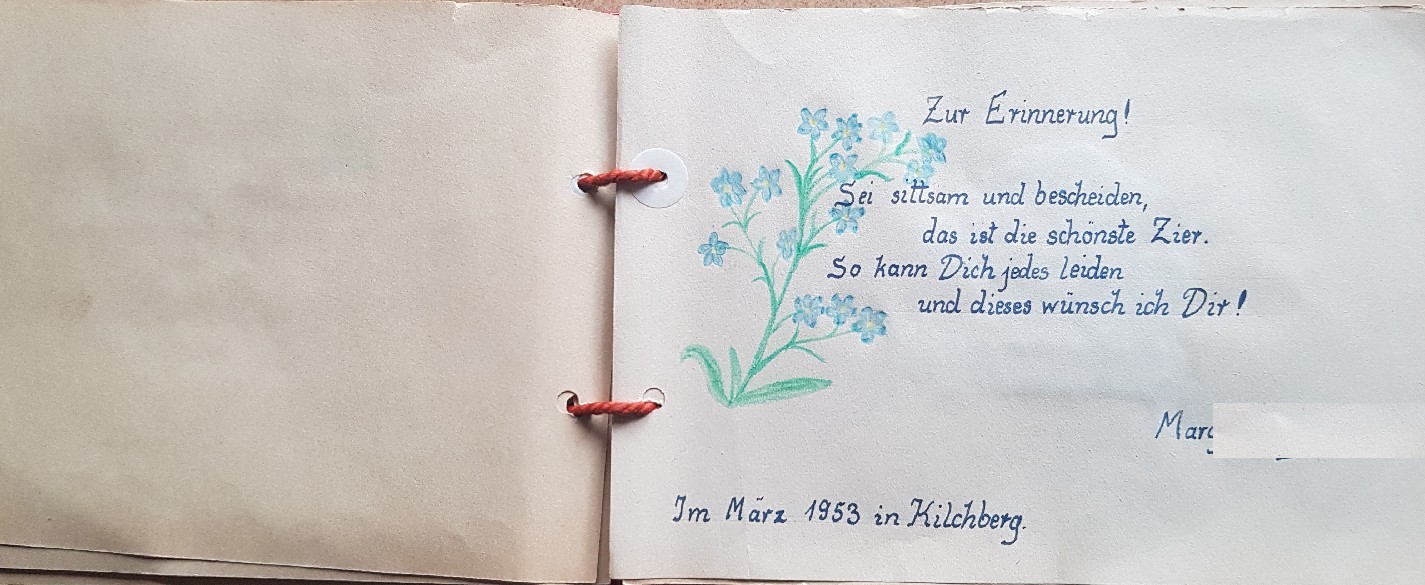 Zur Erinnerung!
Sei sittsam und bescheiden,
das ist die schönste Zier.
So kann Dich jedes leiden
und dieses wünsch ich Dir!
Im März 1953 in Kilchberg.